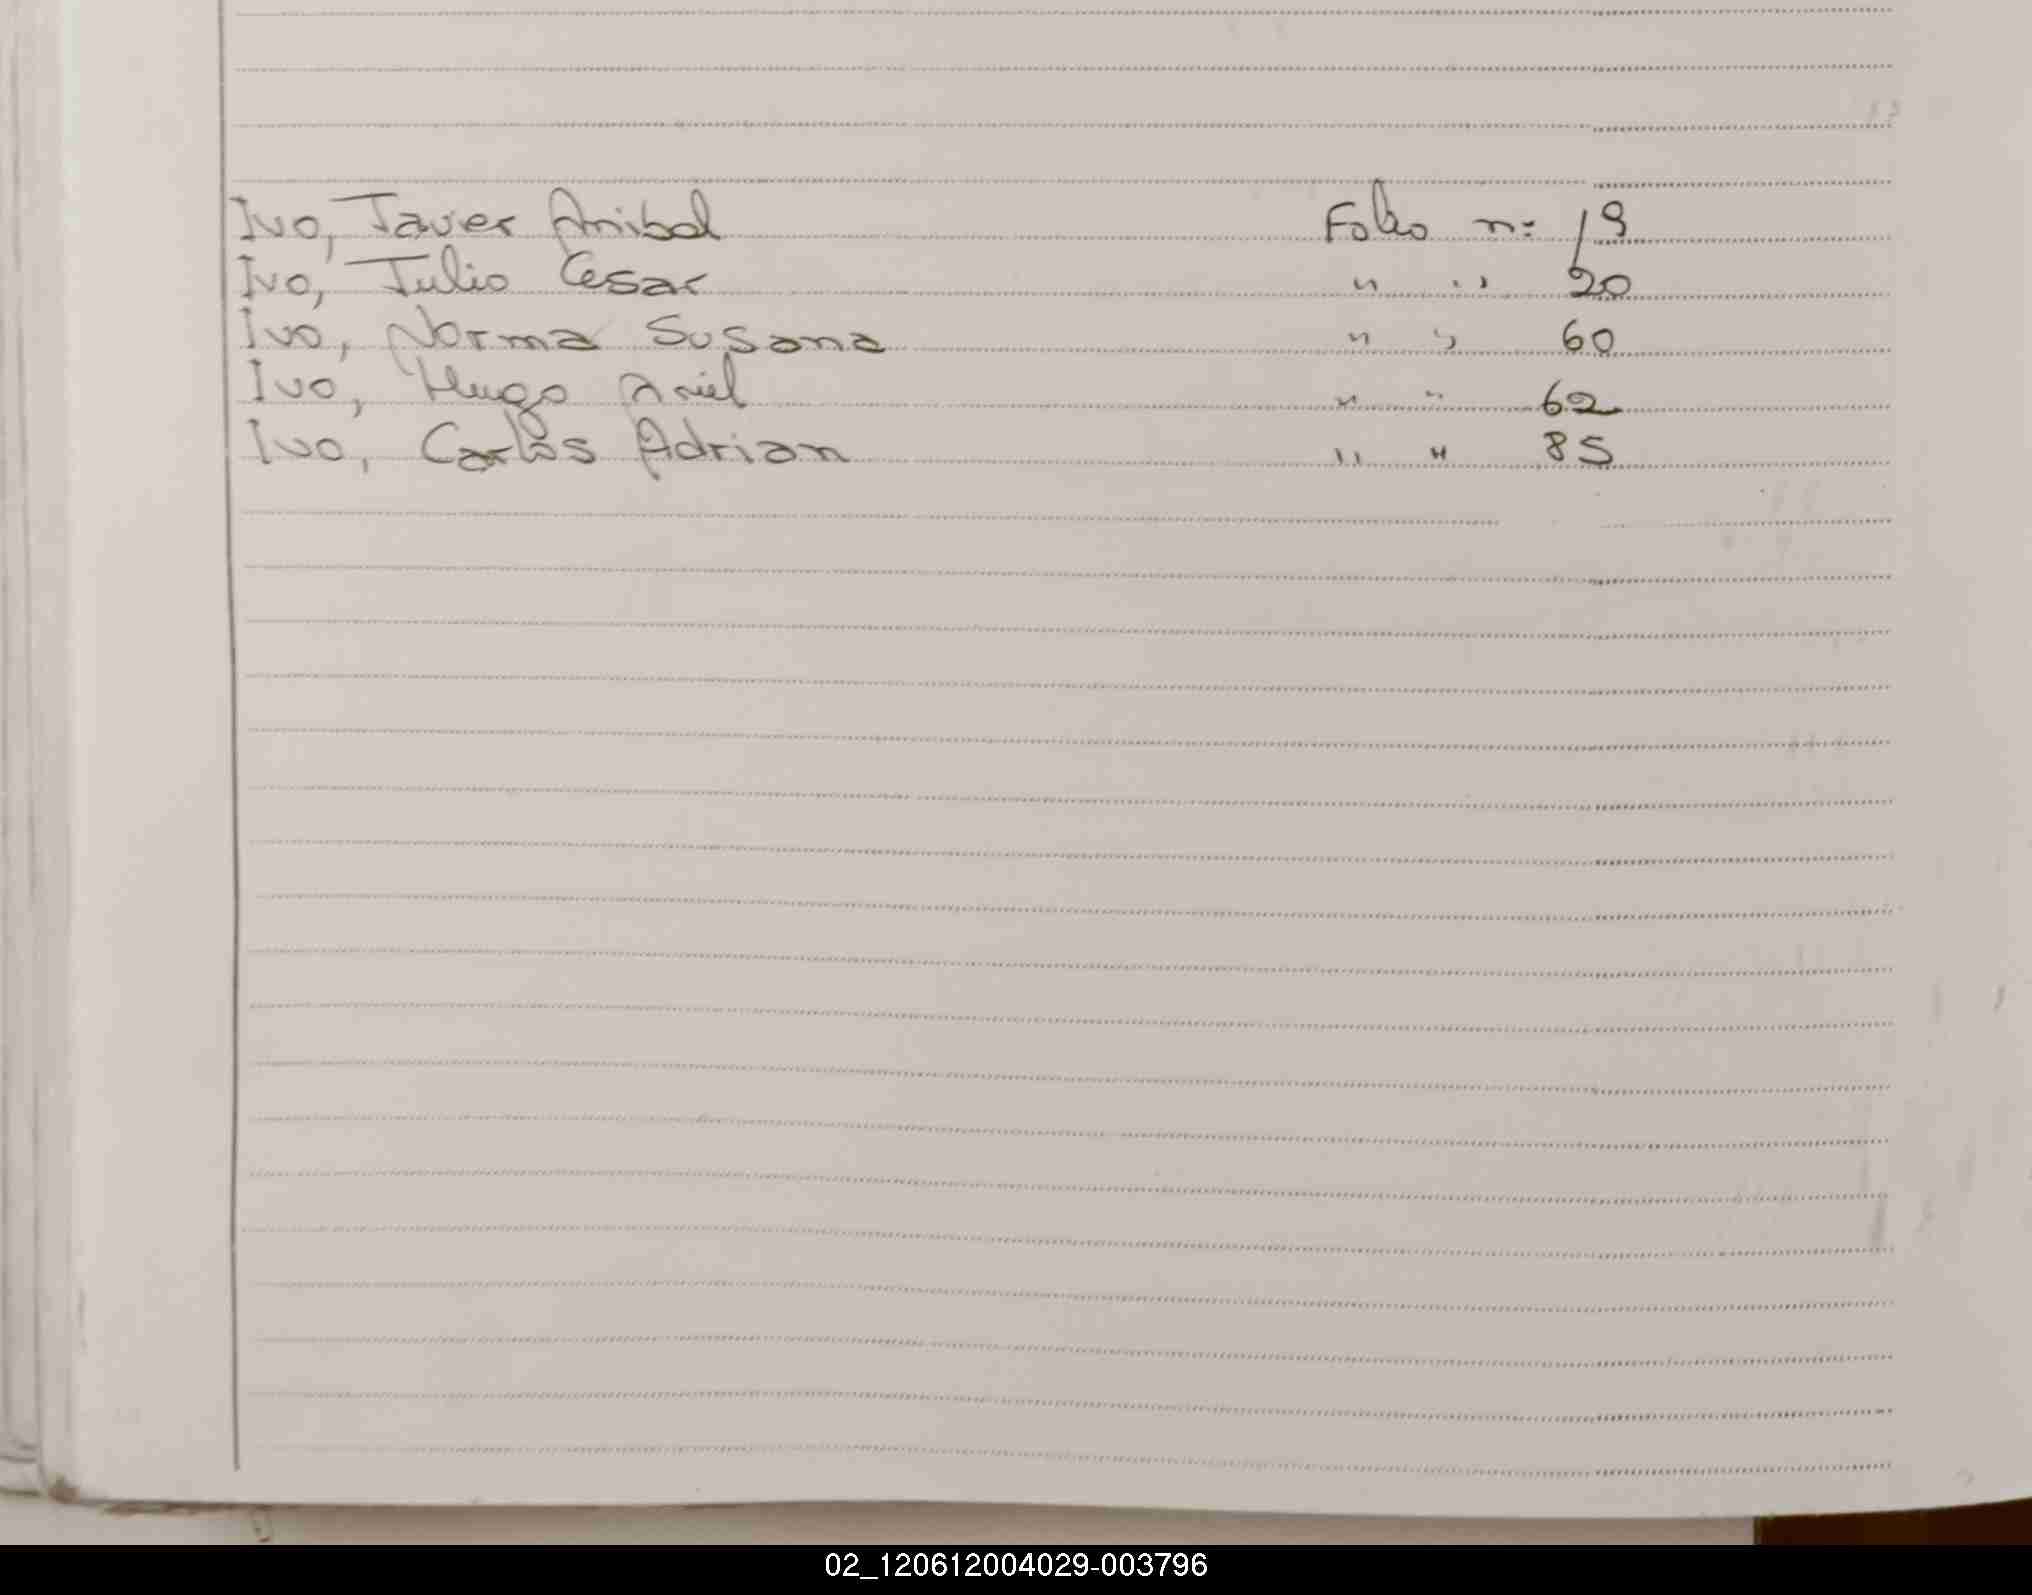 Ivo, Javier Anibal Folio n: 19
Ivo, Julio Cesar " " 20
Ivo, Norma Susana " " 60
Ivo, Hugo Ariel " " 62
Ivo, Carlos Adrian " " 85
02_120612004029-003796